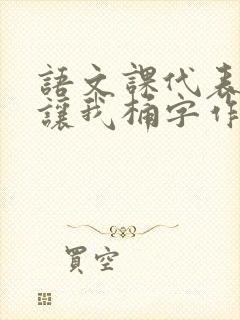 語文課代表
讓我桶字作
買空